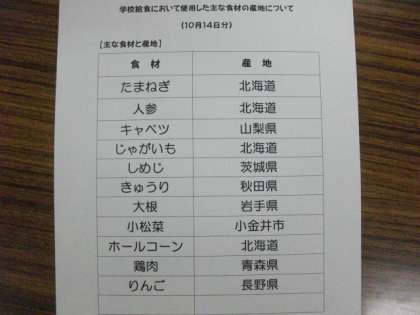 学校給食において使用した主な食材の産地について
(10月14日分)
【主な食材と産地】
食材 産地
たまねぎ 北海道
人参 北海道
キャベツ 山梨県
じゃがいも 北海道
しめじ 茨城県
きゅうり 秋田県
大根 岩手県
小松菜 小金井市
ホールコーン 北海道
鶏肉 青森県
りんご 長野県